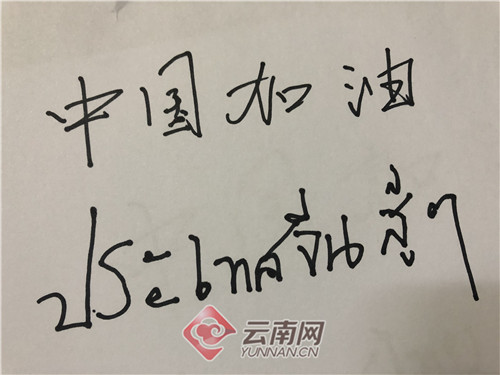 中国加油
ประเทศจีนสู้ๆ
云南网
YUNNAN.CN